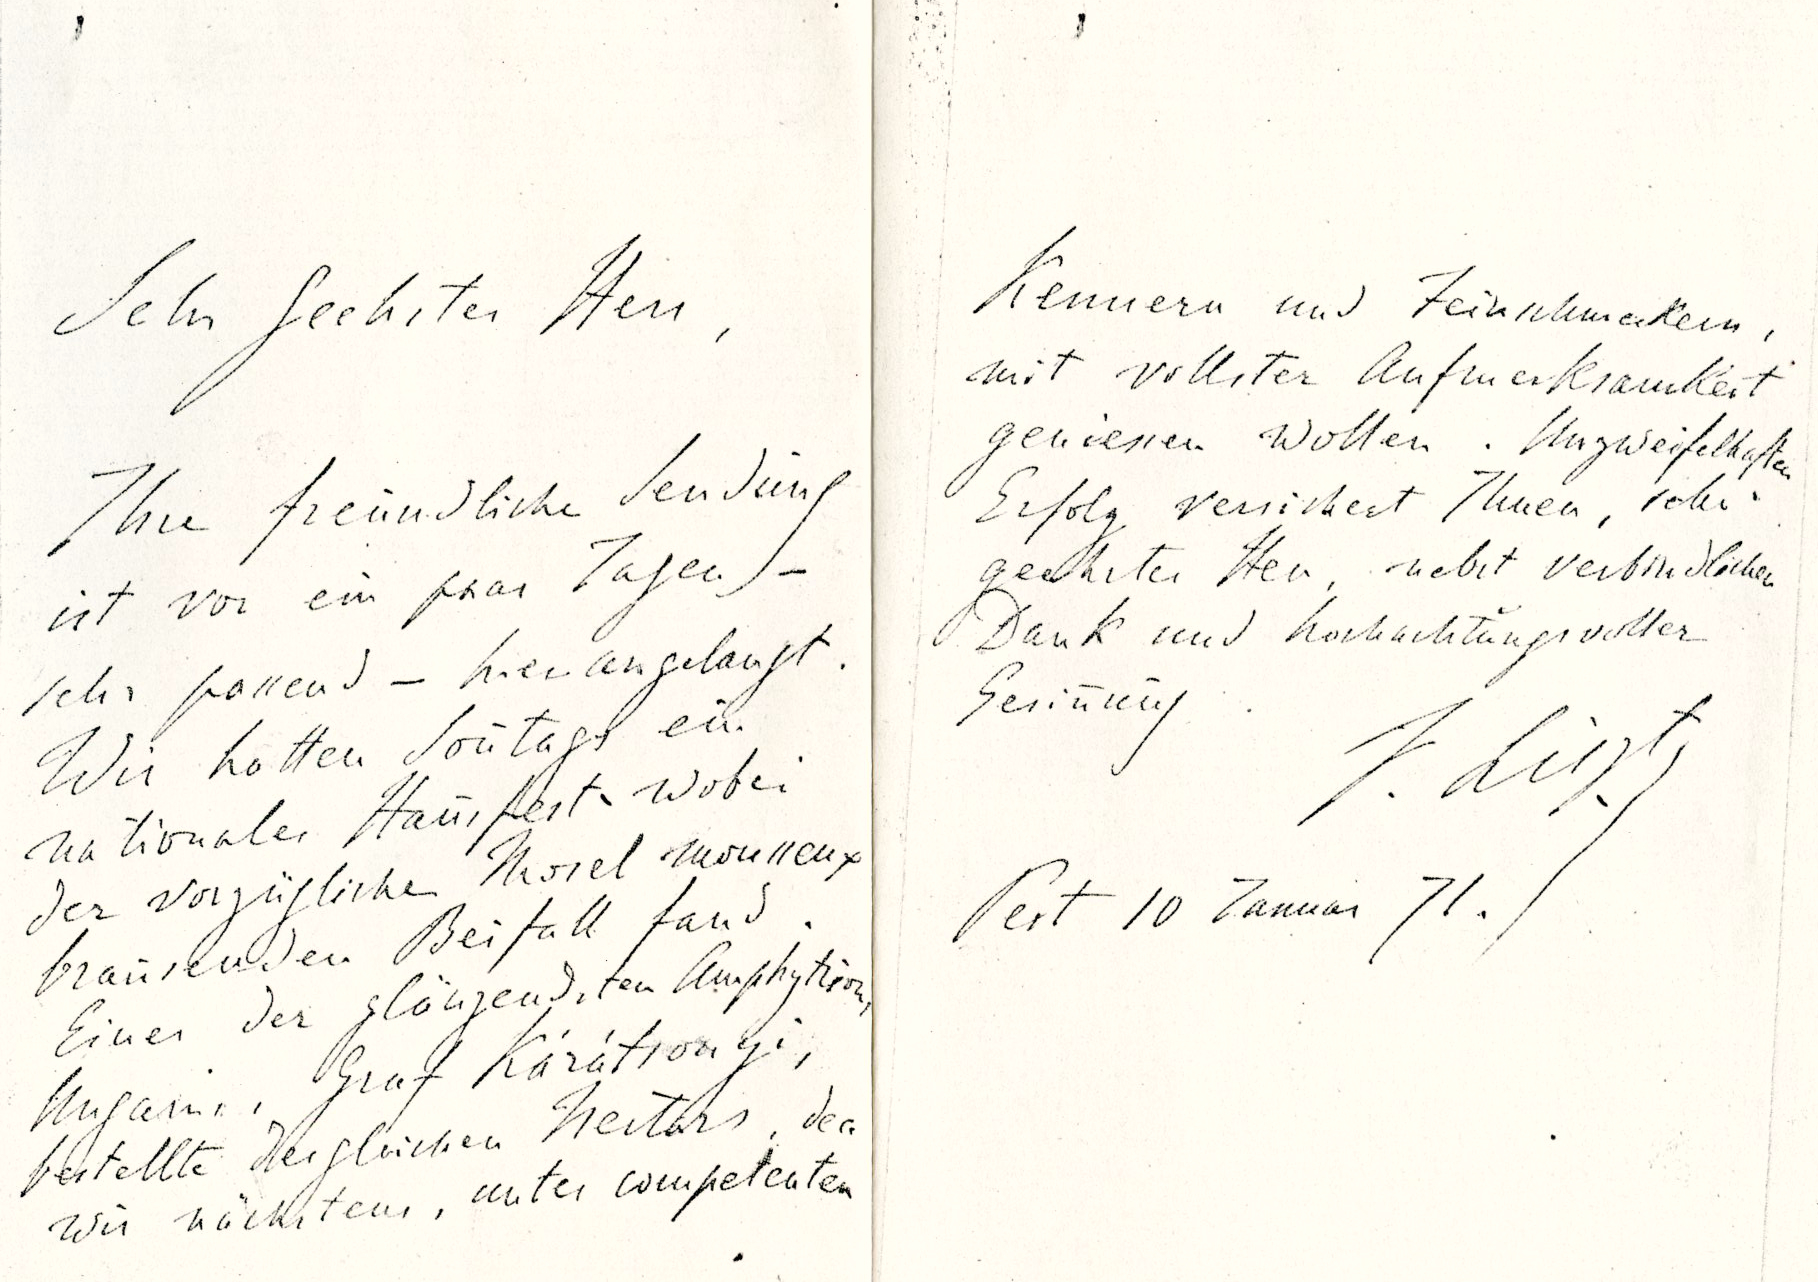 Sehr geehrter Herr,
Ihre freundliche Sendung
ist vor ein paar Tagen –
sehr passend – hier angelangt.
Wir hatten Soñtags ein
nationales Hausfest wobei
der vorzügliche Mosel mousseux
brausenden Beifall fand.
Einer der glänzendsten Amphytrion,
Ungarns, Graf Károátsonyi,
bestellte desgleichen Nectars, den
wir nächstens, unter competenten
Kennern und Feinschmeckern,
mit vollster Aufmerksamkeit
geniessen wollen. Unzweifelhaften
Erfolg versichert Ihnen, sehr
geehrter Herr, nebst verbindlichen
Dank und hochachtungsvoller
Gesiñung
F. Liszt
Pest 10 Januar 71.